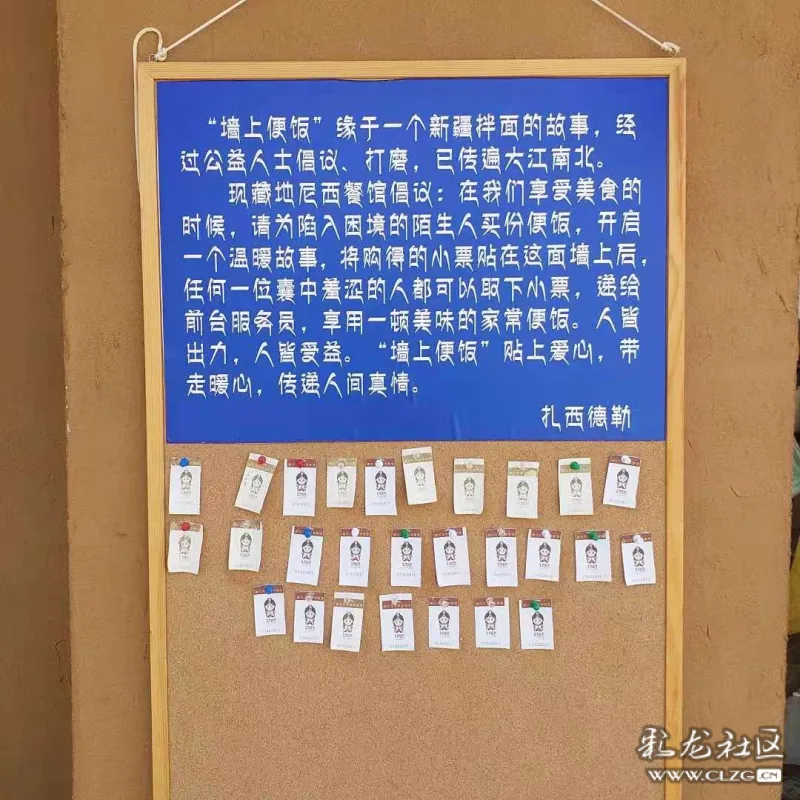 “墙上便饭”缘于一个新疆拌面的故事，经
过公益人士倡议、打磨，已传遍大江南北。
现藏地尼西餐馆倡议：在我们享爱美食的
时候，请为陷入困境的陌生人买份便饭，开启
一个温暖故事，将购得的小票贴在这面墙上后，
任何一位囊中羞涩的人都可以取下小票，递给
前台服务员，享用一顿美味的家常便饭。人皆
出力，人皆爱益。“墙上便饭”贴上爱心，带
走暖心，传递人间真情。
扎西德勒
彩龙社区
WWW.CLZG.CN